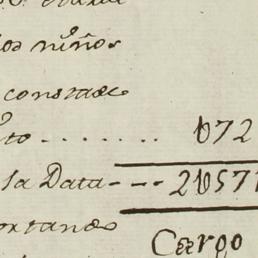 los niños
constae
to ........ 072
la Data--- 21571
ortanes
Cargo